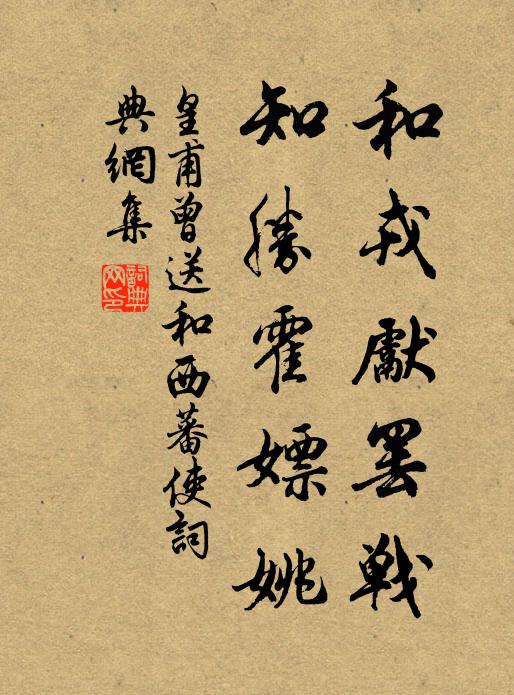 和戎獻罷戰
知勝霍嫖姚
皇甫曾送和西蕃使詞
典網集
詞典網印